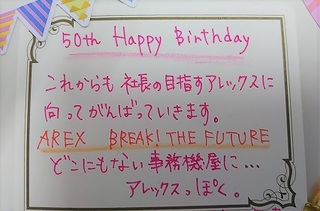 50th Happy Birthday
これからも 社長の目指すアレックスに
向ってがんばっていきます。
AREX BREAK! THE FUTURE
どこにもない事務機屋に…
アレックスっぽく。